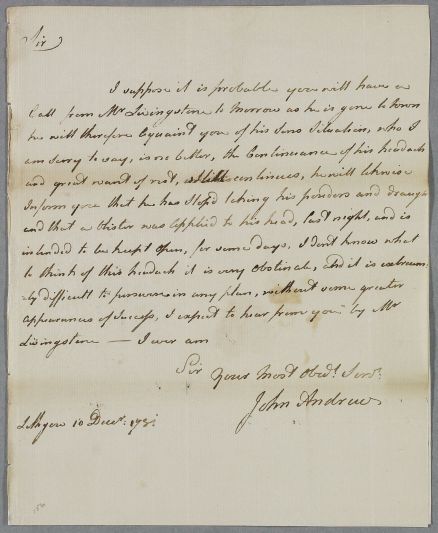 Sir
I suppose it is probable you will have a
Call from Mr Livingstone to Morrow as he is gone to town
he will therefore Equaint you of his Sons Situation, who I
am sorry to say, is no better, the Continuance of his headach
and great want of rest, still continues, he will likewise
Inform you that he has stopd taking his powders and draugh
and that a blister was applied to his head, last night, and is
intended to be keept open, for some days, I Dont know what
to think of this headach it is very obstinate, and it is extream
-ly difficult to persevere in any plan, without some greater
appearances of Success, I expect to hear from you by Mr
Livingstone — I ever am
Sir
Your Most Obedt Servt
John Andrew
Lithgow 10 Decr.